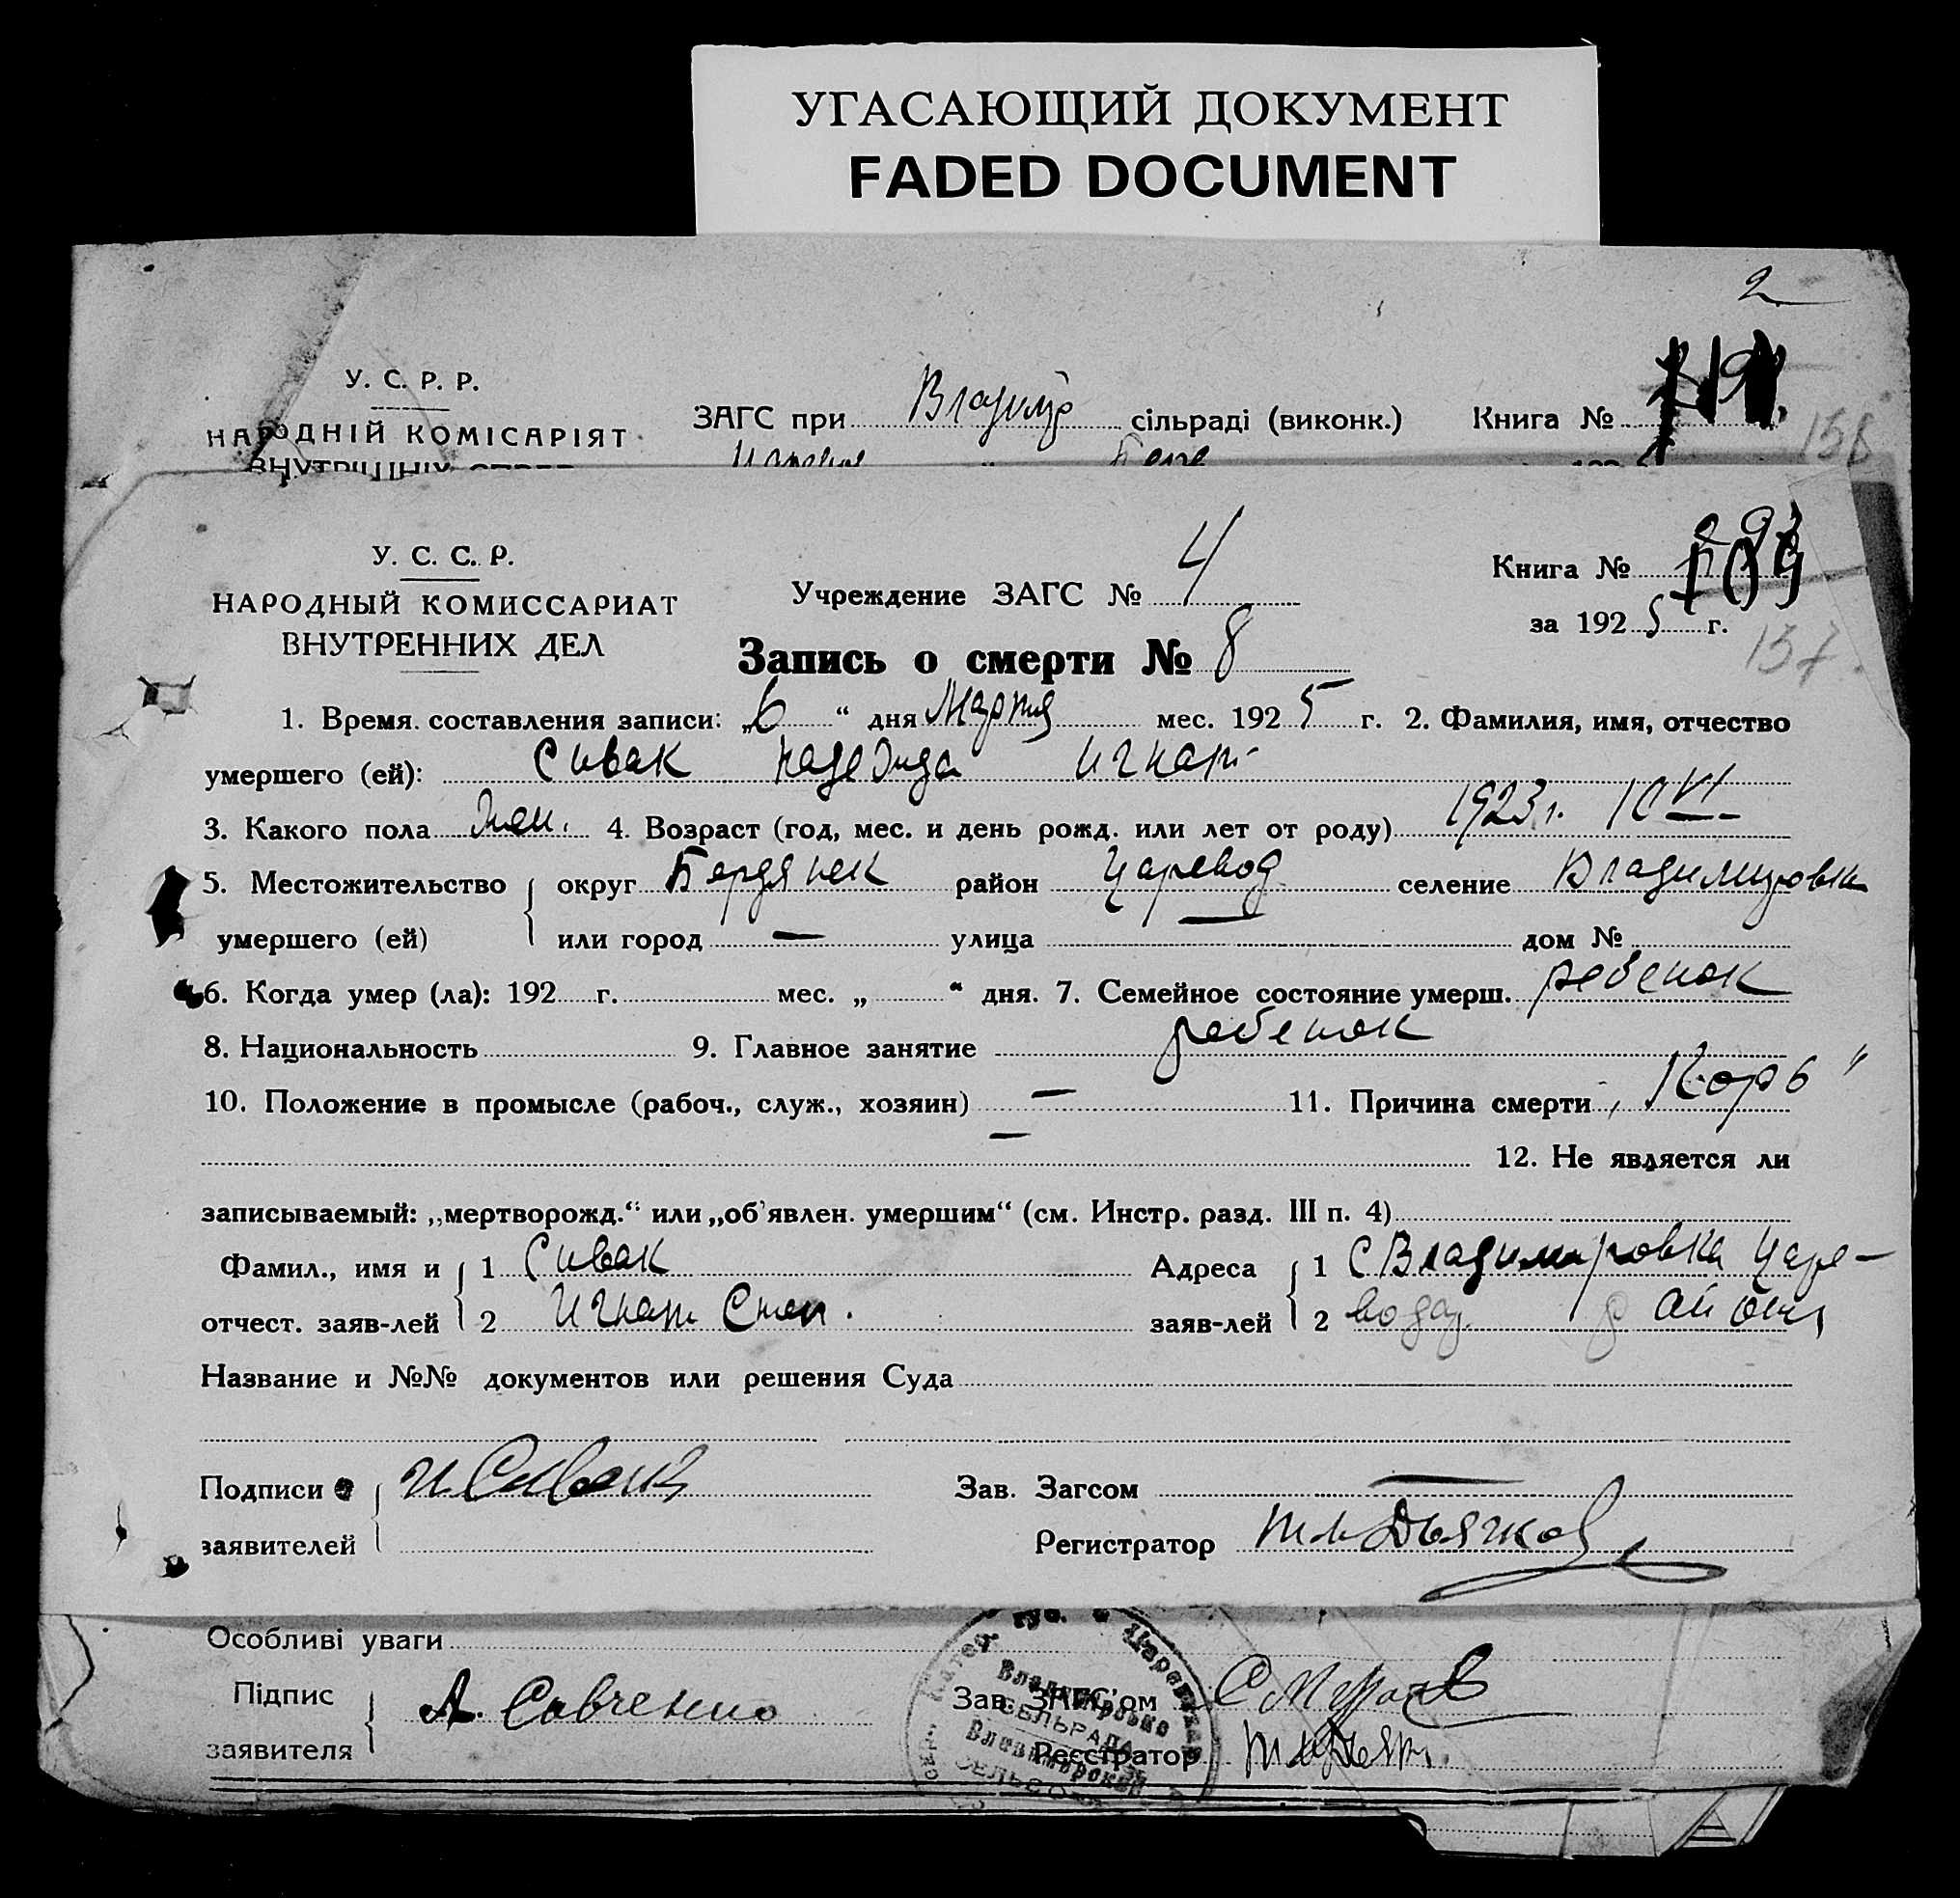 УГАСАЮЩИЙ ДОКУМЕНТ
FADED DOCUMENT
2
У. С. Р. Р.
НАРОДНІЙ КОМІСАРІЯТ
ЗАГС при Владимір сільраді (виконк.) Книга №
156
У. С. С. Р.
НАРОДНЫЙ КОМИССАРИАТ
ВНУТРЕННИХ ДЕЛ
Учреждение ЗАГС № 4
Книга № 293
за 1925 г.
137
Запись о смерти № 8
1. Время составления записи: „6“ дня Марта мес. 1925 г. 2. Фамилия, имя, отчество
умершего (ей): Сивак Надежда Игнат
3. Какого пола жен. 4. Возраст (год, мес. и день рожд. или лет от роду) 1923 г. 10 VI
5. Местожительство округ Бердянск район Царевод селение Владимировка
умершего (ей) или город — улица — дом №
6. Когда умер (ла): 192 г. мес. „ “ дня. 7. Семейное состояние умерш. ребенок
8. Национальность 9. Главное занятие ребенок
10. Положение в промысле (рабоч., служ., хозяин) — 11. Причина смерти „Корь“
— 12. Не является ли
записываемый: „мертворожд.“ или „об'явлен. умершим“ (см. Инстр. разд. III п. 4)
Фамил., имя и 1 Сивак Адреса 1 С Владимировка Царе-
отчест. заяв-лей 2 Игнат Степ. заяв-лей 2 вода района
Название и №№ документов или решения Суда
Подписи И Сивак Зав. Загсом —
заявителей Регистратор Дьячков
Особливі уваги
Підпис А. Савченко Зав. ЗАГС'ом
заявителя Реєстратор